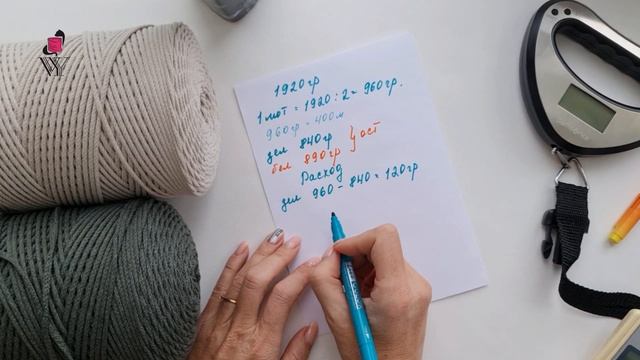 1920гр
1 мот = 1920 : 2 = 960гр.
960гр = 400м
зел 840гр } ост
бел 890гр
Расход
зел 960 - 840 = 120гр